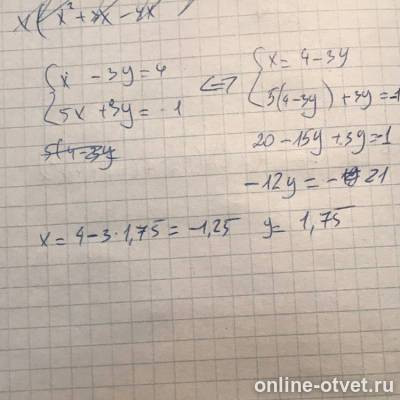 x(x² + 3x - 4x
{ x - 3y = 4
{ 5x + 3y = -1
<=>
{ x = 4 - 3y
{ 5(4-3y) + 3y = -1
5(4-3y
20 - 15y + 3y = -1
-12y = -21
x = 4 - 3 · 1,75 = -1,25 y = 1,75
online-otvet.ru